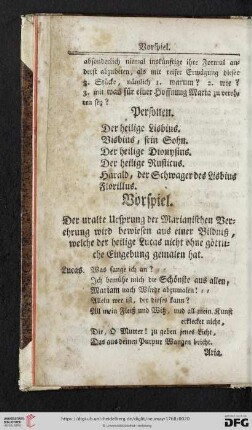 Vorspiel.
absonderlich niemal inskünftige ihre Formul an-
derst abzubeten, als mit reifer Erwägung dieser
3. Stücke, nämlich 1. warum? 2. wie?
3. mit was für einer Hoffnung Maria zu vereh-
ren sey?
Personen.
Der heilige Lisbius.
Visbius, sein Sohn.
Der heilige Dionysius.
Der heilige Rusticus.
Harald, der Schwager des Lisbius
Florillus.
Vorspiel.
Der uralte Ursprung der Marianischen Ver-
ehrung wird bewiesen aus einer Bildniß,
welche der heilige Lucas nicht ohne göttli-
che Eingebung gemalen hat.
Lucas. Was fange ich an?
Ich bemühe mich die Schönste aus allen,
Mariam nach Würde abzumalen:
Allein wer ist, der dieses kann?
All mein Fleiß und Witz, und all mein Kunst
erklecket nicht,
Die, O Mutter! zu geben jenes Licht,
Das aus deinen Purpur Wangen bricht.
Aria.
https://digi.ub.uni-heidelberg.de/diglit/